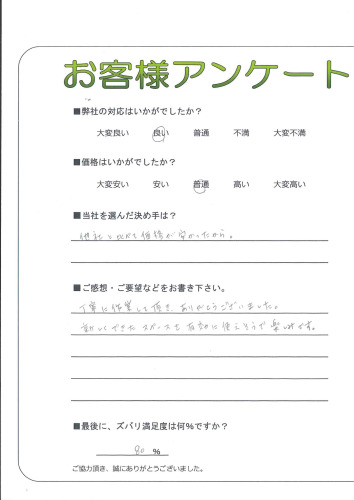 お客様アンケート
■弊社の対応はいかがでしたか？
大変良い 良い 普通 不満 大変不満
■価格はいかがでしたか？
大変安い 安い 普通 高い 大変高い
■当社を選んだ決め手は？
他社と比べて価格が安かったから。
■ご感想・ご要望などをお書き下さい。
丁寧に作業して頂き、ありがとうございました。
新しくできたスペースを有効に使えそうで楽しみです。
■最後に、ズバリ満足度は何％ですか？
80 ％
ご協力頂き、誠にありがとうございました。